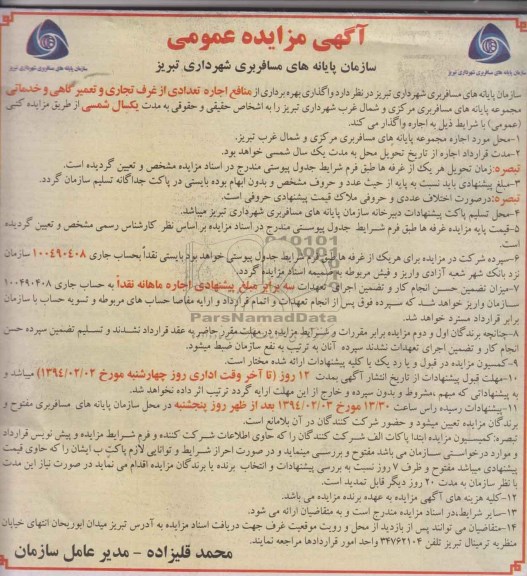 آگهی مزایده عمومی
سازمان پایانه های مسافربری شهرداری تبریز
سازمان پایانه های مسافربری شهرداری تبریز
سازمان پایانه های مسافربری شهرداری تبریز
سازمان پایانه های مسافربری شهرداری تبریز در نظر دارد واگذاری بهره برداری از منافع اجاره تعدادی از غرف تجاری و تعمیر گاهی و خدماتی
مجموعه پایانه های مسافربری مرکزی و شمال غرب شهرداری تبریز را به اشخاص حقیقی و حقوقی به مدت یکسال شمسی از طریق مزایده کتبی
(عمومی) با شرایط ذیل به اجاره واگذار می کند.
۱-محل مورد اجاره مجموعه پایانه های مسافربری مرکزی و شمال غرب تبریز.
۲-مدت قرارداد اجاره از تاریخ تحویل محل به مدت یک سال شمسی خواهد بود.
تبصره: زمان تحویل هر یک از غرفه ها طبق فرم شرایط جدول پیوستی مندرج در اسناد مزایده مشخص و تعیین گردیده است.
۳-مبلغ پیشنهادی باید نسبت به پایه از حیث عدد و حروف مشخص و بدون ابهام بوده بایستی در پاکت جداگانه تسلیم سازمان گردد.
تبصره: درصورت اختلاف عددی و حروفی ملاک قیمت پیشنهادی حروفی است.
۴-محل تسلیم پاکت پیشنهادات دبیرخانه سازمان پایانه های مسافربری شهرداری تبریز میباشد.
۵-قیمت پایه مزایده غرفه ها طبق فرم شرایط جدول پیوستی مندرج در اسناد مزایده بر اساس نظر کارشناس رسمی مشخص و تعیین گردیده
است.
۶-سپرده شرکت در مزایده برای هریک از غرفه ها طبق فرم شرایط جدول پیوستی خواهد بود بایستی نقداً بحساب جاری ۱۰۰۴۹۰۴۰۸ سازمان
نزد بانک شهر شعبه آزادی واریز و فیش مربوطه به ضمیمه اسناد مزایده گردد.
۷-میزان تضمین حسن انجام کار و تضمین اجرای تعهدات سه برابر مبلغ پیشنهادی اجاره ماهانه نقداً به حساب جاری ۱۰۰۴۹۰۴۰۸
سازمان واریز خواهد شد که سپرده فوق پس از انجام تعهدات و اتمام قرارداد و ارایه مفاصا حساب های مربوطه و تسویه حساب با سازمان
برابر قرارداد مسترد خواهد شد.
۸-چنانچه برندگان اول و دوم مزایده برابر مقررات و شرایط مزایده در مهلت مقرر حاضر به عقد قرارداد نشدند و تسلیم تضمین سپرده حسن
انجام کار و تضمین اجرای تعهدات نشدند سپرده آنان به ترتیب به نفع سازمان ضبط میشود.
۹-کمیسیون مزایده در قبول و یا رد یک یا کلیه پیشنهادات ارائه شده مختار است.
۱۰-مهلت قبول پیشنهادات از تاریخ انتشار آگهی بمدت ۱۲ روز (تا آخر وقت اداری روز چهارشنبه مورخ ۱۳۹۴/۰۲/۰۲) میباشد و
به پیشنهاداتی که مبهم ،مشروط و بدون سپرده و خارج از این مهلت ارایه گردد ترتیب اثر داده نخواهد شد.
۱۱-پیشنهادات رسیده راس ساعت ۱۳/۳۰ مورخ ۱۳۹۴/۰۲/۰۳ بعد از ظهر روز پنجشنبه در محل سازمان پایانه های مسافربری مفتوح و
برندگان مزایده تعیین میشود و حضور شرکت کنندگان در آن بلامانع است.
تبصره:کمیسیون مزایده ابتدا پاکات الف شرکت کنندگان را که حاوی اطلاعات شرکت کننده و فرم شرایط مزایده و پیش نویس قرارداد
و موارد درخواستی سازمان می باشد مفتوح و بررسی مینماید و در صورت احراز شرایط و توانایی لازم پاکت ب ایشان را که حاوی قیمت
پیشنهادی میباشد مفتوح و ظرف ۷ روز نسبت به بررسی پیشنهادات و انتخاب برنده یا برندگان مزایده اقدام می نماید در صورت نیاز این مدت
با نظر سازمان به مدت ۲۰ روز دیگر قابل تمدید است.
۱۲-کلیه هزینه های آگهی مزایده به عهده برنده مزایده می باشد.
۱۳-سایر شرایط،در اسناد مزایده مندرج است و به متقاضیان ارائه می شود.
۱۴-متقاضیان می توانند پس از بازدید از محل و رویت موقعیت غرف جهت دریافت اسناد مزایده به آدرس تبریز میدان ابوریحان انتهای خیابان
منظریه ترمینال تبریز تلفن ۳۴۷۶۲۱۰۴ واحد امور قراردادها مراجعه نمایند.
محمد قلیزاده - مدیر عامل سازمان
ParsNamadData